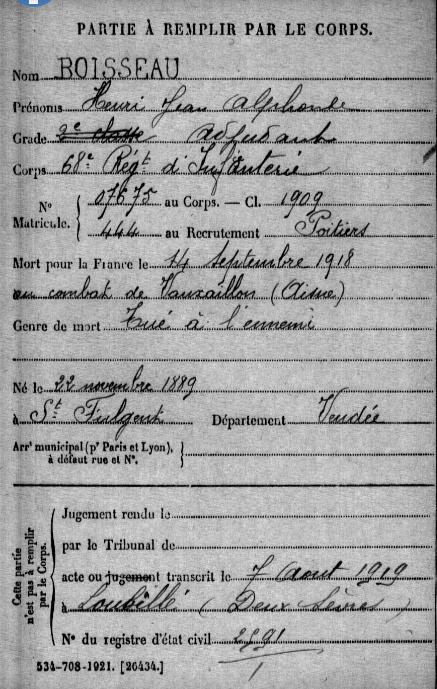 PARTIE À REMPLIR PAR LE CORPS.
Nom BOISSEAU
Prénoms Henri Jean Alphonse
Grade 2e classe adjudant
Corps 68e Régt d'Infanterie
N° Matricule. { 07675 au Corps. — Cl. 1909
444 au Recrutement Poitiers
Mort pour la France le 14 septembre 1918
au combat de Vauxaillon (Aisne)
Genre de mort Tué à l'ennemi
Né le 22 novembre 1889
à St Fulgent Département Vendée
Arrt municipal (pr Paris et Lyon), à défaut rue et N°. }
Cette partie n'est pas à remplir par le Corps.
Jugement rendu le
par le Tribunal de
acte ou jugement transcrit le 7 Aout 1919
à Loubillé (Deux Sèvres)
N° du registre d'état civil
534-708-1921. [26434.]